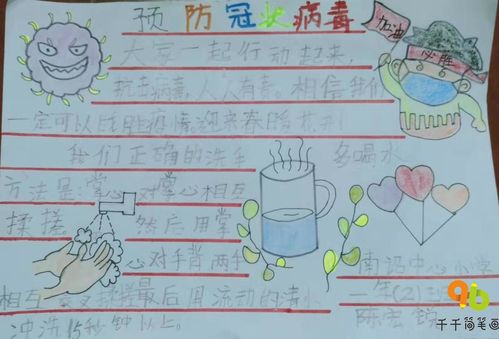 预防冠状病毒
加油
必胜
大家一起行动起来,
抗击病毒,人人有责。相信我们
一定可以战胜疫情,迎来春暖花开!
我们正确的洗手
多喝水
方法是:掌心对掌心相互
揉搓 然后用掌
心对手背两手
相互交叉揉搓最后用流动的清水
冲洗15秒钟以上。
南诏中心小学
一年(2)
陈宏锐
千千简笔画